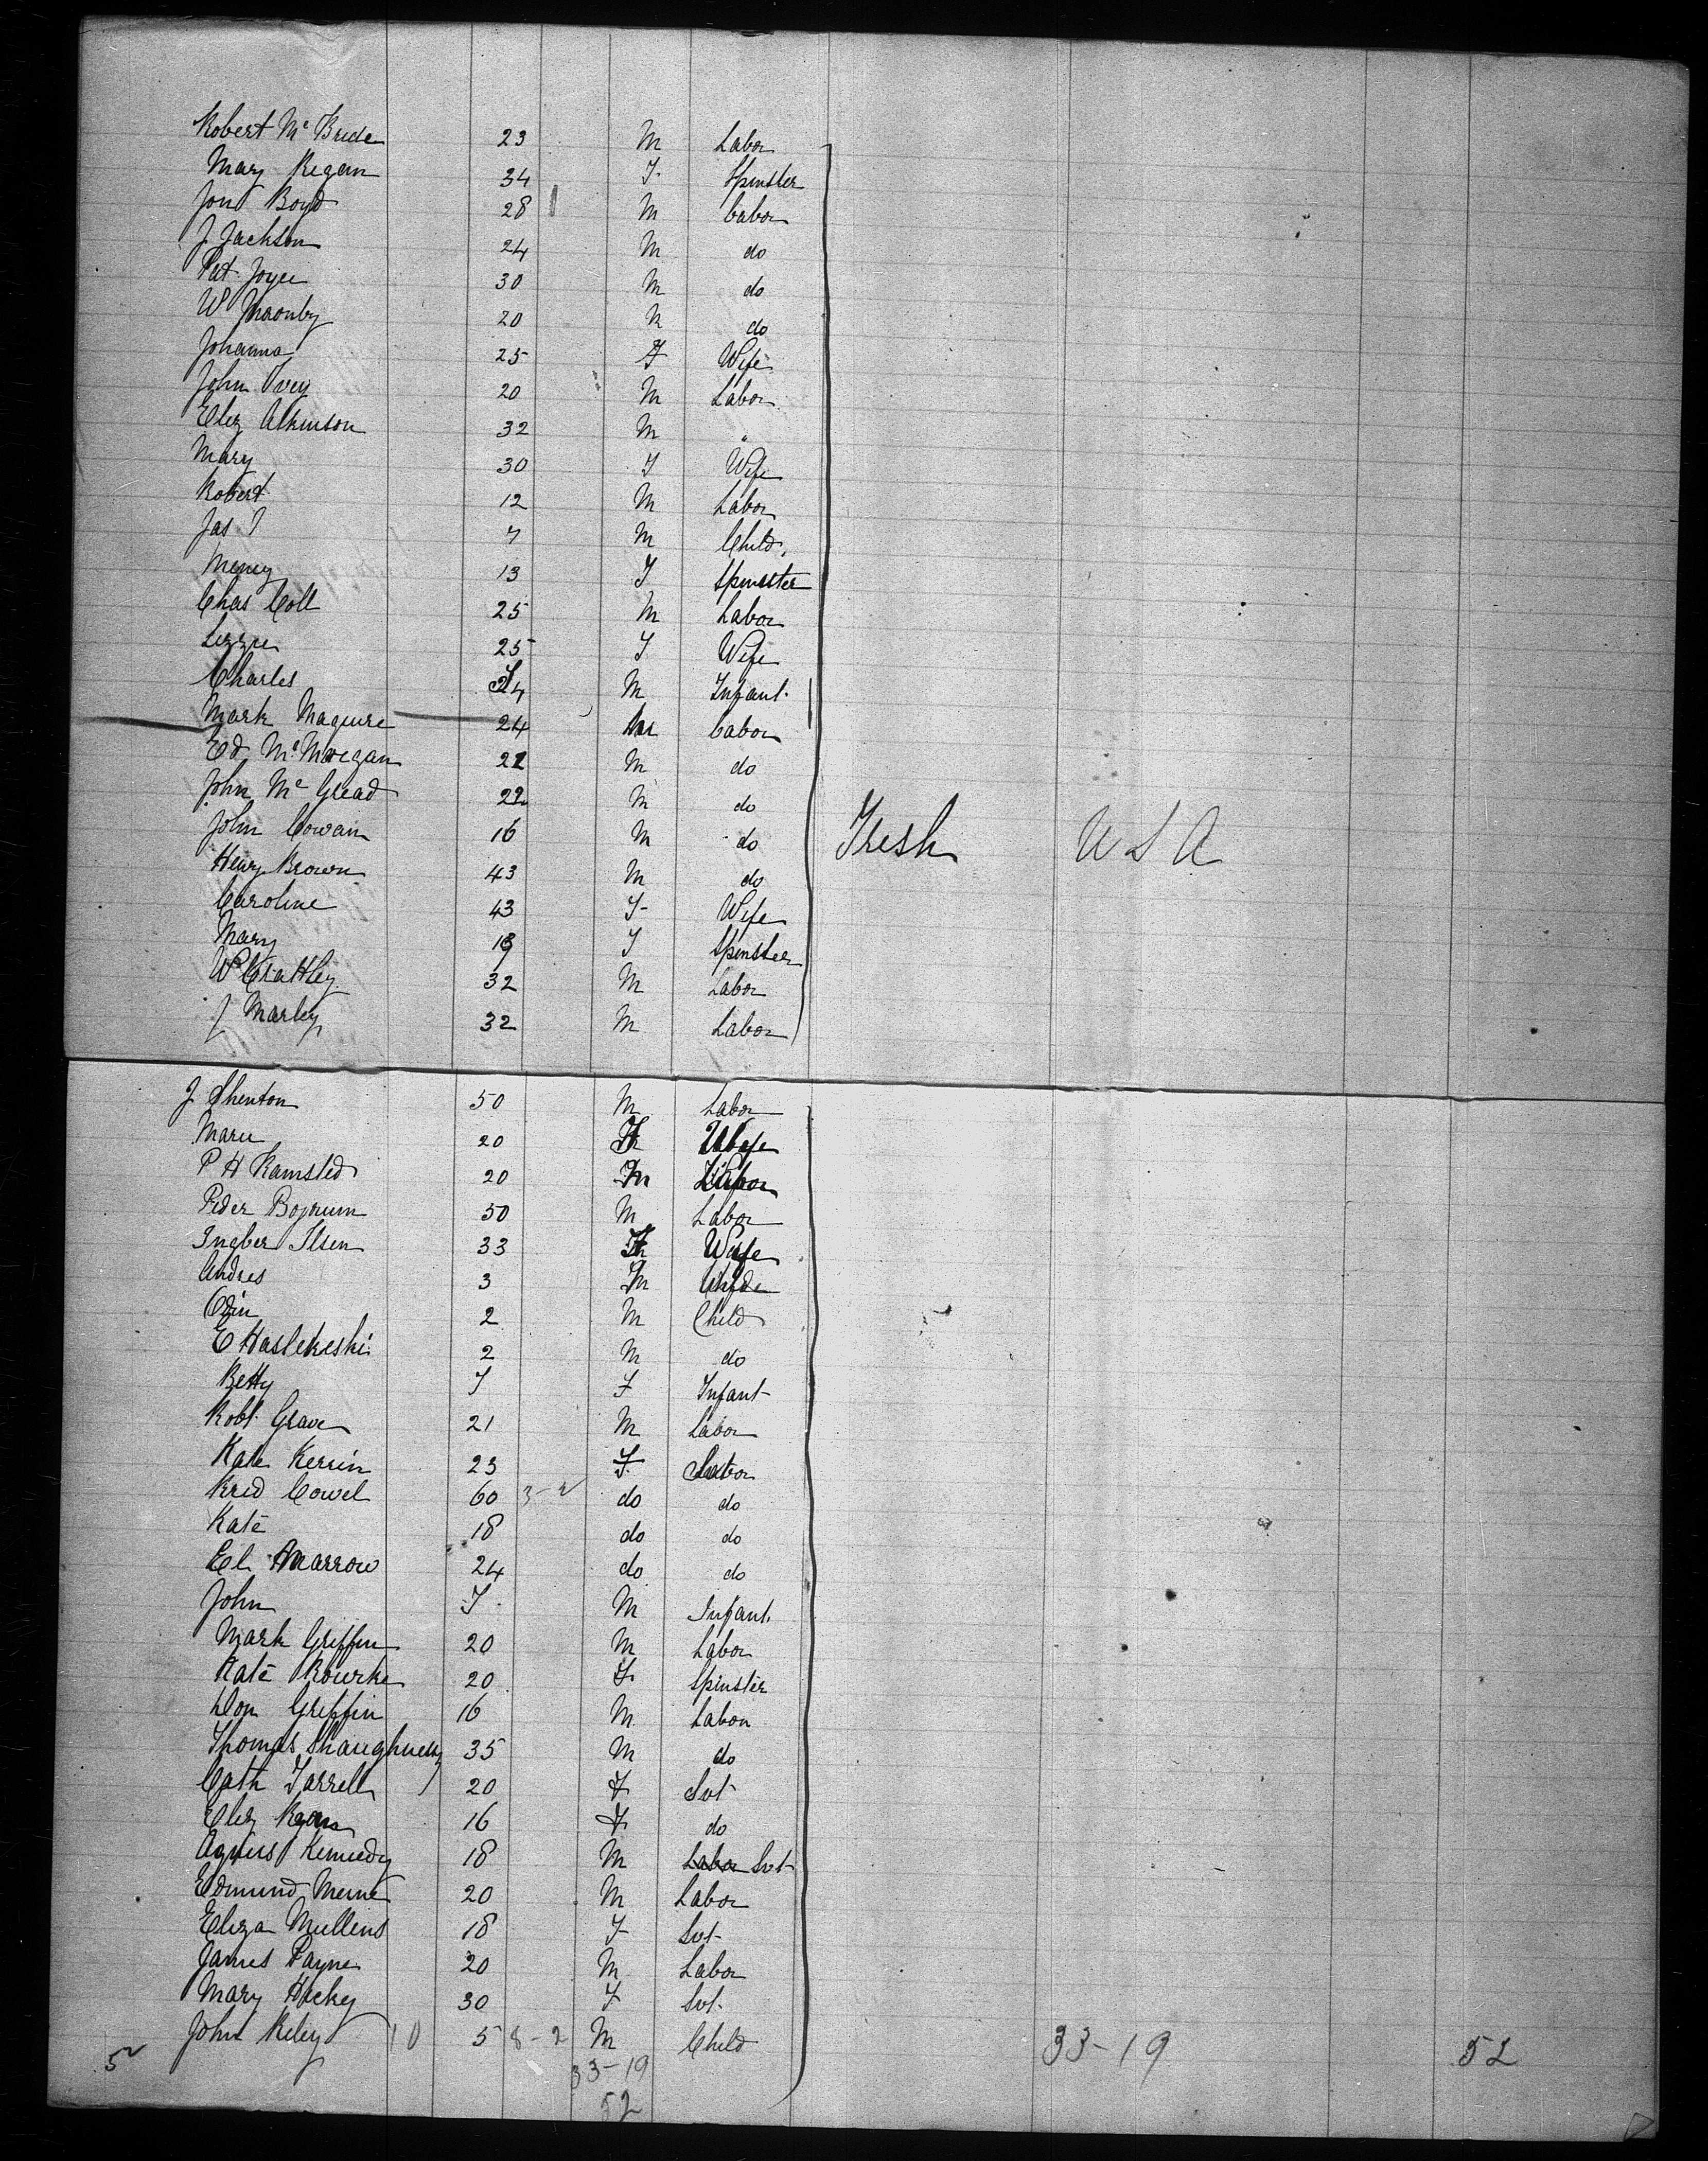 Robert McBride 23 M Labor
Mary Regan 34 F Spinster
Jon Boyd 28 M Labor
J Jackson 24 M do
Pat Joyce 30 M do
W 20 M do
Johanna 25 F Wife
John Ivey 20 M Labor
Eliz Atkinson 32 M "
Mary 30 F Wife
Robert 12 M Labor
Jas 7 M Child
13 F Spinster
Chas Coll 25 M Labor
Lizzie 25 F Wife
Charles M Infant
Mark Maguire 24 M Labor
Ed McMorgan 22 M do
John Mc Gread 22 M do
John Cowan 16 M do Irish U S A
Henry Brown 43 M do
Caroline 43 F Wife
Mary F Spinster
W 32 M Labor
J Marley 32 M Labor
J Shenton 50 M Labor
Marie 20 F Wife
P H Ramsted 20 M Labor
Peder 50 M Labor
Ingber Ilsen 33 F Wife
Andres 3 M Child
Odin 2 M Child
E 2 M do
Betty I F Infant
Robt. Grave 21 M Labor
Kate Kerrin 23 F Labor
Cowel 60 3-2 do do
Kate 18 do do
El Marrow 24 do do
John I M Infant
Mark Griffin 20 M Labor
Kate Rourke 20 F Spinster
Don Griffin 16 M Labor
Thomas Shaughnessy 35 M do
Cath Farrell 20 F Svt
Eliz 16 F do
Agnes Kennedy 18 M Labor Svt
Edmund 20 M Labor
Eliza Mullins 18 F Svt
James Payne 20 M Labor
Mary Hicky 30 F Svt
John Riley 10 5 8-2 M Child 33-19 52
52 33-19
52